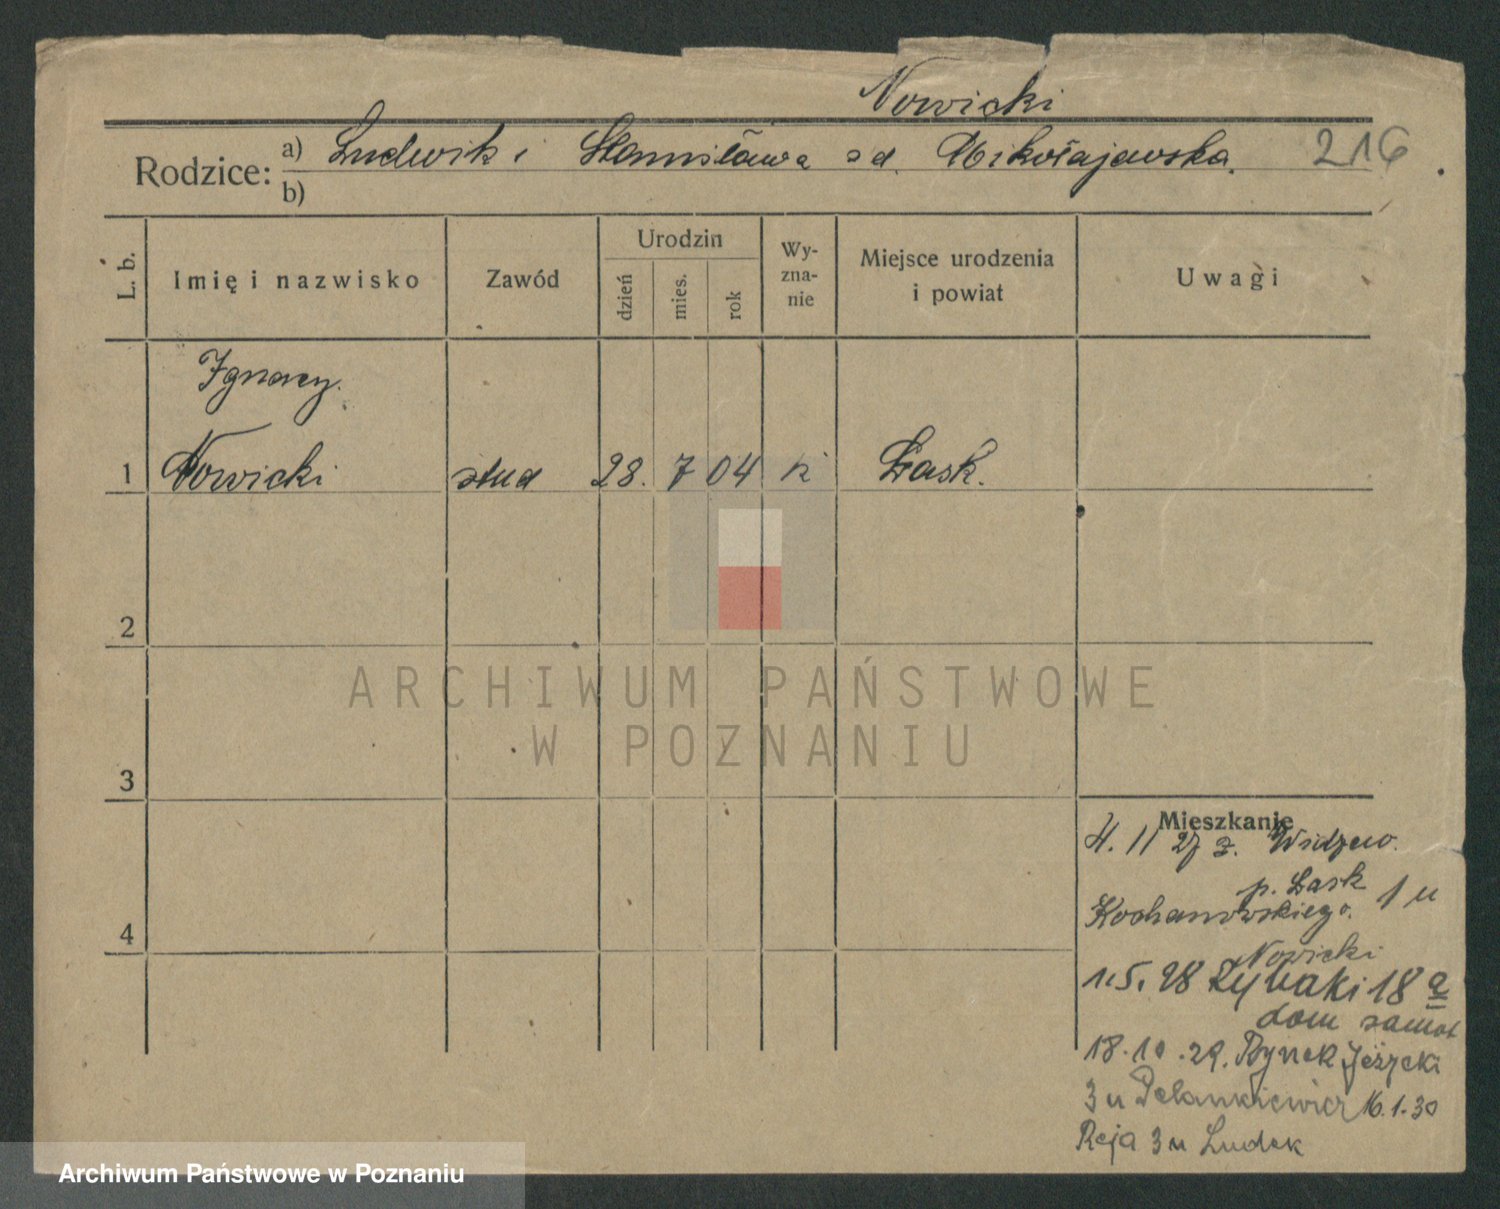 Nowicki
Rodzice: a) Ludwik i Stanisława zd. Mikołajewska. 216
b)
L. b. Imię i nazwisko Zawód Urodzin dzień mies. rok Wy-zna-nie Miejsce urodzenia i powiat Uwagi
Ignacy.
1 Nowicki stud 28. 7 04 k Łask.
2
3
4
Mieszkanie
4. 11 27 z. Widzew.
p. Łask
Kochanowskiego. 1 u
Nowicki
1.5.28 Rybaki 18 a
dom
18.10.29. Rynek Jeżycki
3 u 16.1.30
Reja 3 u Ludek
ARCHIWUM PAŃSTWOWE
W POZNANIU
Archiwum Państwowe w Poznaniu